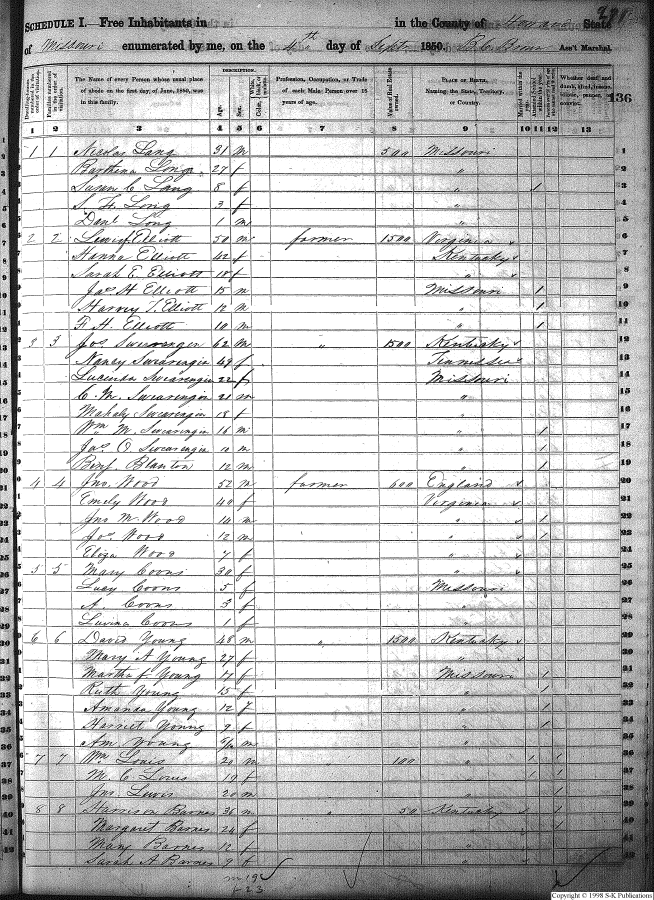 SCHEDULE I.—Free Inhabitants in in the County of State
of Missouri enumerated by me, on the 4th day of Sept. 1850. Ass't Marshal.
136
DESCRIPTION.
The Name of every Person whose usual place of abode on the first day of June, 1850, was in this family.
Age. Sex.
Profession, Occupation, or Trade of each Male Person over 15 years of age.
Value of Real Estate owned.
PLACE OF BIRTH. Naming the State, Territory, or Country.
1 2 3 4 5 6 7 8 9 10 11 12 13
1 1 Nicolas Lang 31 m 500 Missouri 1
Barthena Long 27 f " 2
Susan C Lang 8 f " 1 3
S. H. Long 3 f " 4
Danl Long 1 m " 5
2 2 Lewis Elliott 50 m farmer 1500 Virginia 6
Hanna Elliott 42 f Kentucky 7
Sarah E. Elliott 18 f " 8
Jas H Elliott 15 m Missouri 1 9
Harvey T. Elliott 12 m " 1 10
F. H. Elliott 10 m " 1 11
3 3 Jos Swearengen 62 m " 1500 Kentucky 12
Nancy Swearengin 49 f Tennessee 13
Lucinda Swearengin 22 f Missouri 14
C. M. Swearengin 21 m " 15
Mahaly Swearengin 18 f " 16
Wm M. Swearengin 16 m " 1 17
Jas O. Swearengin 10 m " 1 18
Benj. Blanton 12 m " 1 19
4 4 Jno. Wood 52 m farmer 600 England 20
Emily Wood 40 f Virginia 21
Jno M. Wood 14 m " 1 22
Jos Wood 12 m " 1 23
Eliza Wood 7 f " 24
5 5 Mary Coons 30 f " 25
Lucy Coons 5 f Missouri 26
A. Coons 3 f " 27
Lavina Coons 1 f " 28
6 6 David Young 48 m " 1500 Kentucky 29
Mary A Young 27 f " 30
Martha J Young 17 f Missouri 1 31
Ruth Young 15 f " 1 32
Amanda Young 12 f " 1 33
Harriet Young 9 f " 1 34
Am Young m " 35
7 7 Wm Louis 20 m 100 " 1 1 36
M. C Louis 19 f " 1 1 37
Jno Lewis 20 m " 1 38
8 8 Harrison Barnes 36 m " 50 Kentucky 1 39
Margaret Barnes 24 f " 1 40
Mary Barnes 12 f " 41
Sarah A Barnes 9 f " 42
m 19
f 23
Copyright © 1998 S-K Publications